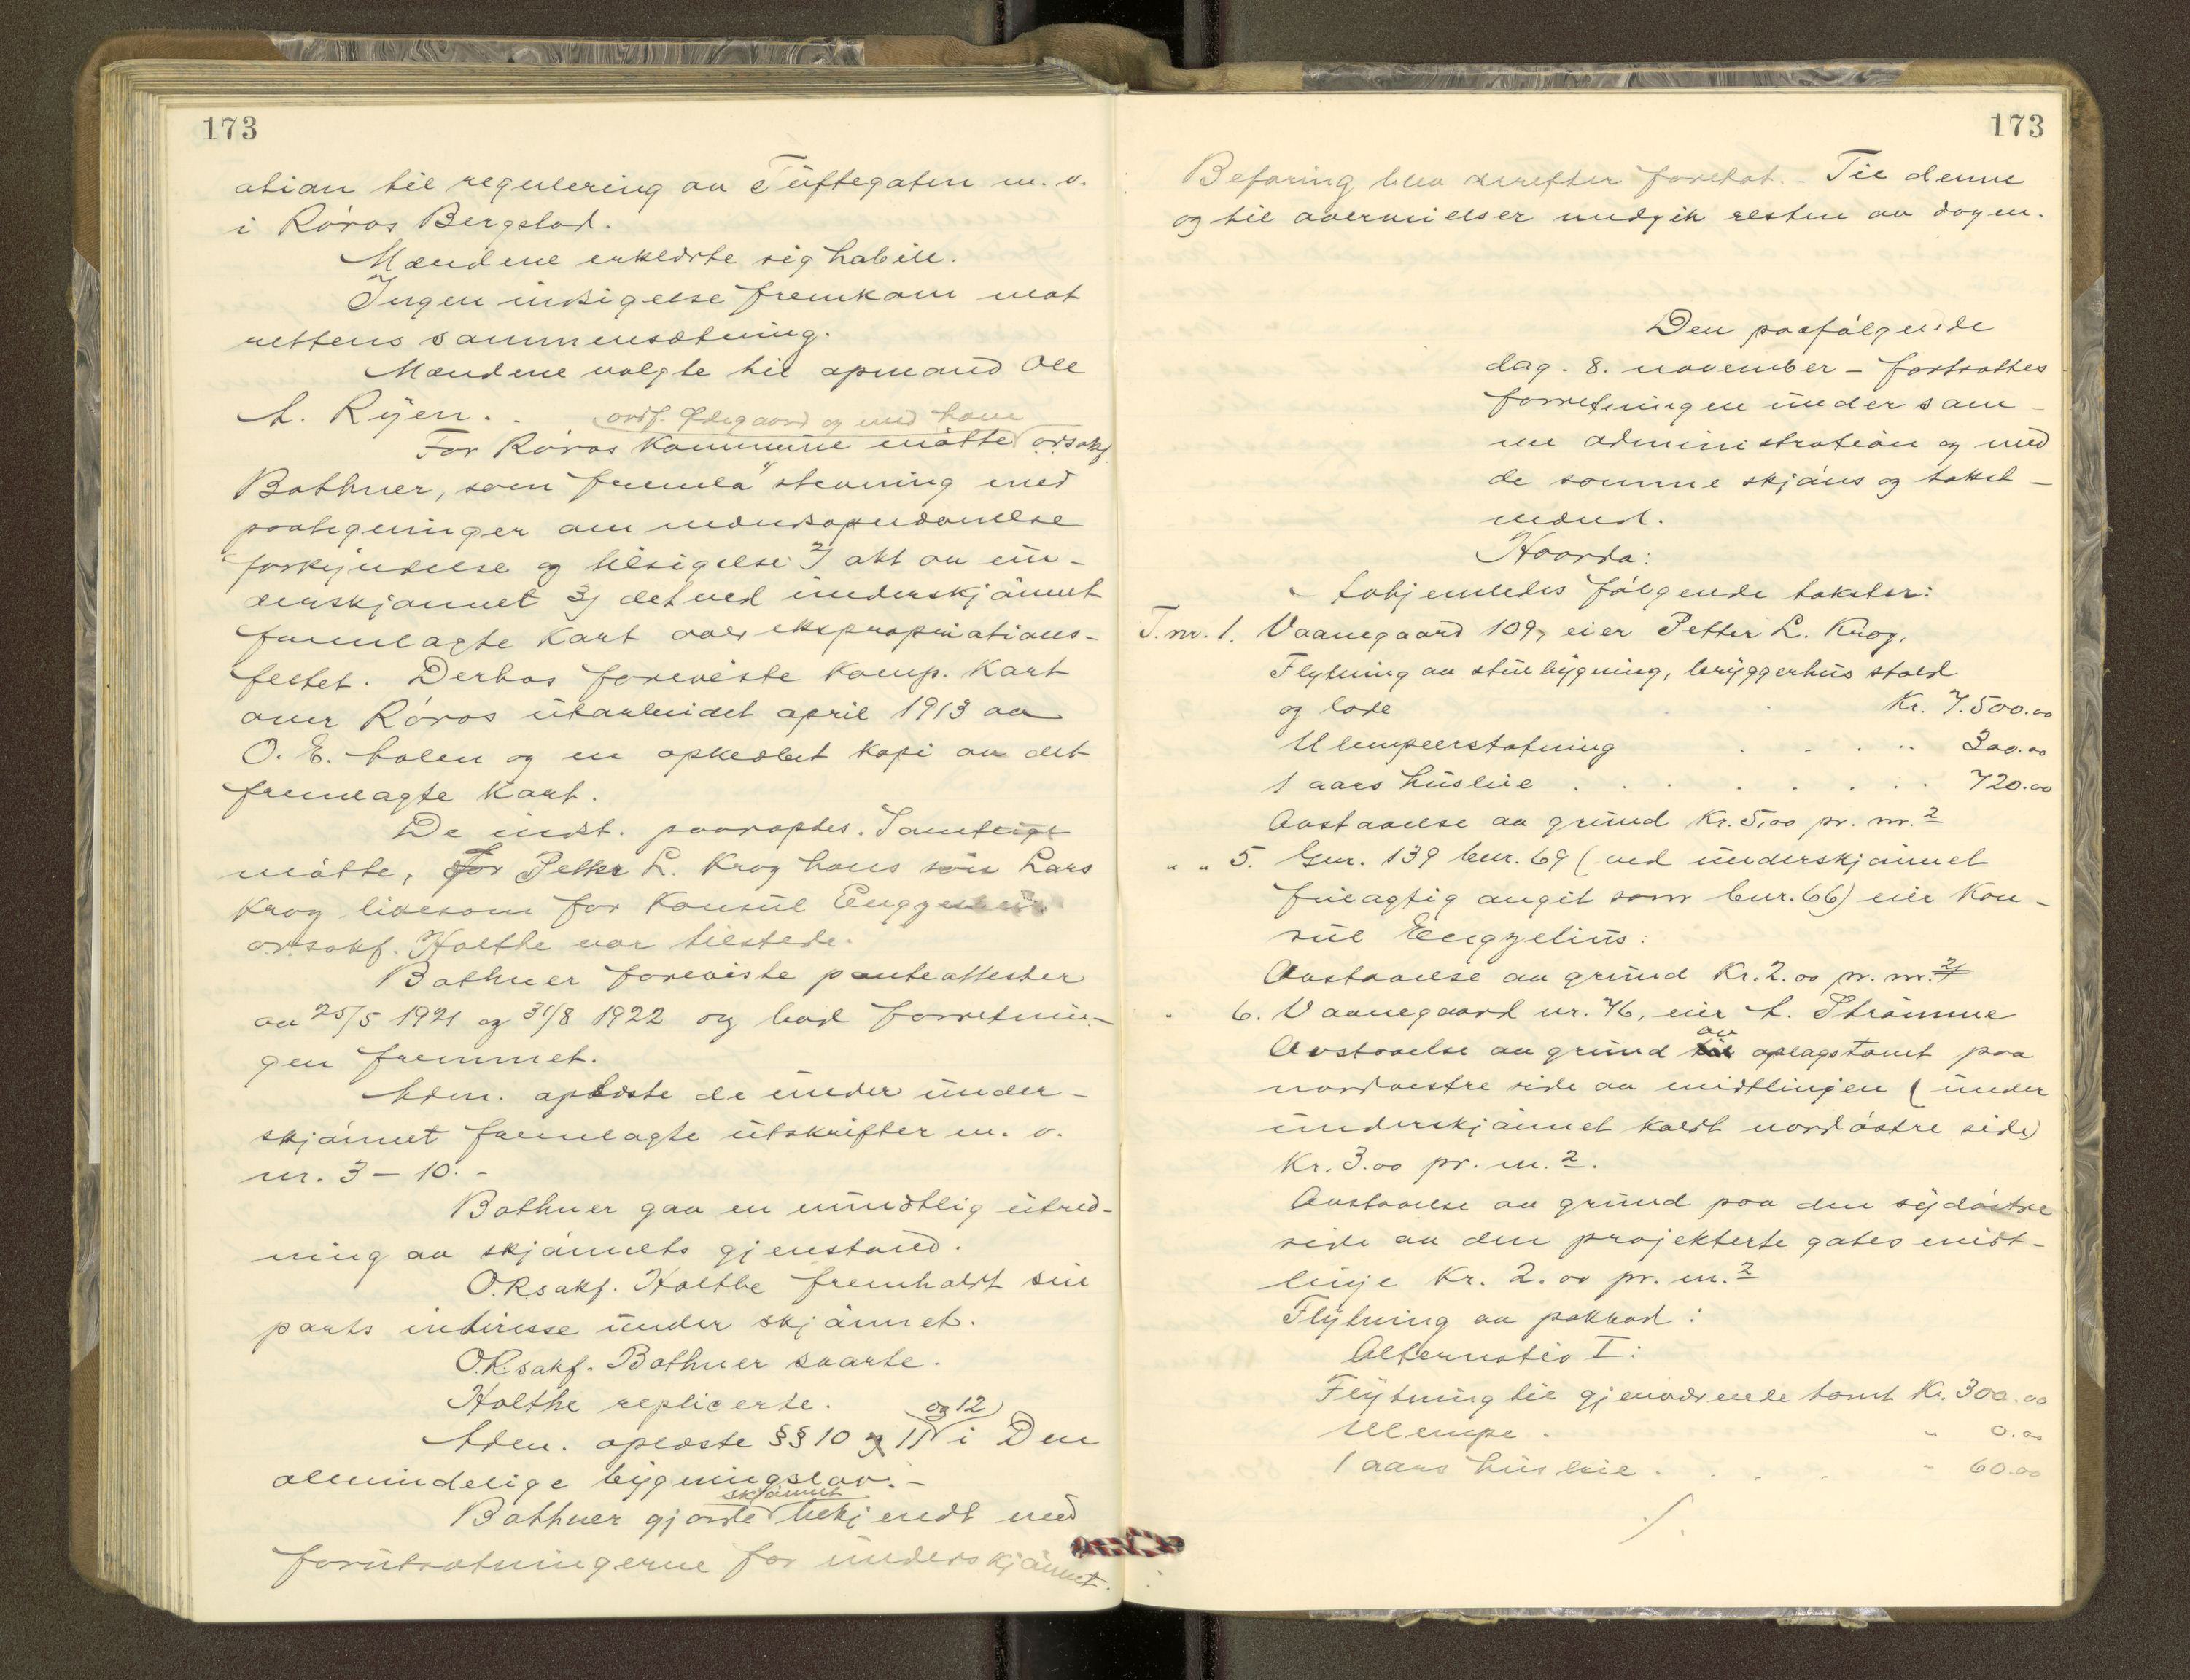 173
ation til regulering av Tuftegaten m. v.
i Röros Bergstad.
Mændene erklærte sig habile.
Ingen indsigelse fremkom mot
rettens sammensætning.
Mændene valgte til opmand Ole
A. Ryen.
ordf. Ødegaard og med ham
For Röros Kommune mötte o.r.sakf.
Bothner, som fremla 1) stevning med
paategninger om mændsopnævnelse
forkyndelse og tilsigelse 2) akt av un-
derskjönnet 3) det ved underskjönnet
fremlagte Kart over ekspropriations-
feltet. Derhos foreviste komp. Kart
over Röros utarbeidet april 1913 av
O. E. Holen og en opklæbet kopi av det
fremlagte Kart.
De indst. paaroptes. Samtlige
mötte, for Petter L. Krog hans sön Lars
Krog likesom for Konsul Engzelius
o.r.sakf. Holthe var tilstede.
Bothner foreviste panteattester
av 25/5 1921 og 31/8 1922 og bad forretnin-
gen fremmet.
Adm. oplæste de under under-
skjönnet fremlagte utskrifter m. v.
nr. 3 - 10. -
Bothner gav en mundtlig utred-
ning av skjönnets gjenstand.
O.R.sakf. Holthe fremholdt sin
parts interesse under skjönnet.
O.R.sakf. Bothner svarte.
Holthe replicerte.
og 12
Adm. oplæste §§ 10 og 11 i Den
almindelige bygningslov. -
skjönnet
Bothner gjorde bekjendt med
forutsætningerne for underskjönnet.
173
Befaring blev derefter foretat. - Til denne
og til overveielser medgik resten av dagen.
Den paafölgende
dag - 8. november - fortsattes
forretningen under sam-
me administration og med
de samme skjöns og takst-
mænd.
Hvorda:
Avhjemledes fölgende takster:
T. nr. 1. Vaanegaard 109, eier Petter L. Krog.
Flytning av stuebygning, bryggerhus stald
og lade Kr. 7.500.00
Ulempeerstatning . . . . " 300.00
1 aars husleie . . . . . . . " 720.00
Avstaaelse av grund Kr. 5,00 pr. m.2
" " 5. Gnr. 139 bnr. 69 (ved underskjönnet
feilagtig angit som bnr. 66) eier Kon-
sul Engzelius:
Avstaaelse av grund Kr. 2.00 pr. m.2
" 6. Vaanegaard nr. 76, eier A. Strömme
av
Avstaaelse av grund til oplagstomt paa
nordvestre side av midtlinjen (under
underskjönnet kaldt nordöstre side)
Kr. 3.00 pr. m.2.
Avstaaelse av grund paa den sydöstre
side av den projekterte gates midt-
linje Kr. 2.00 pr. m.2
Flytning av pakbod:
Alternativ I:
Flytning til gjenværende tomt Kr. 300.00
Ulempe . " 0.00
1 aars husleie . . . . " 60.00
./.